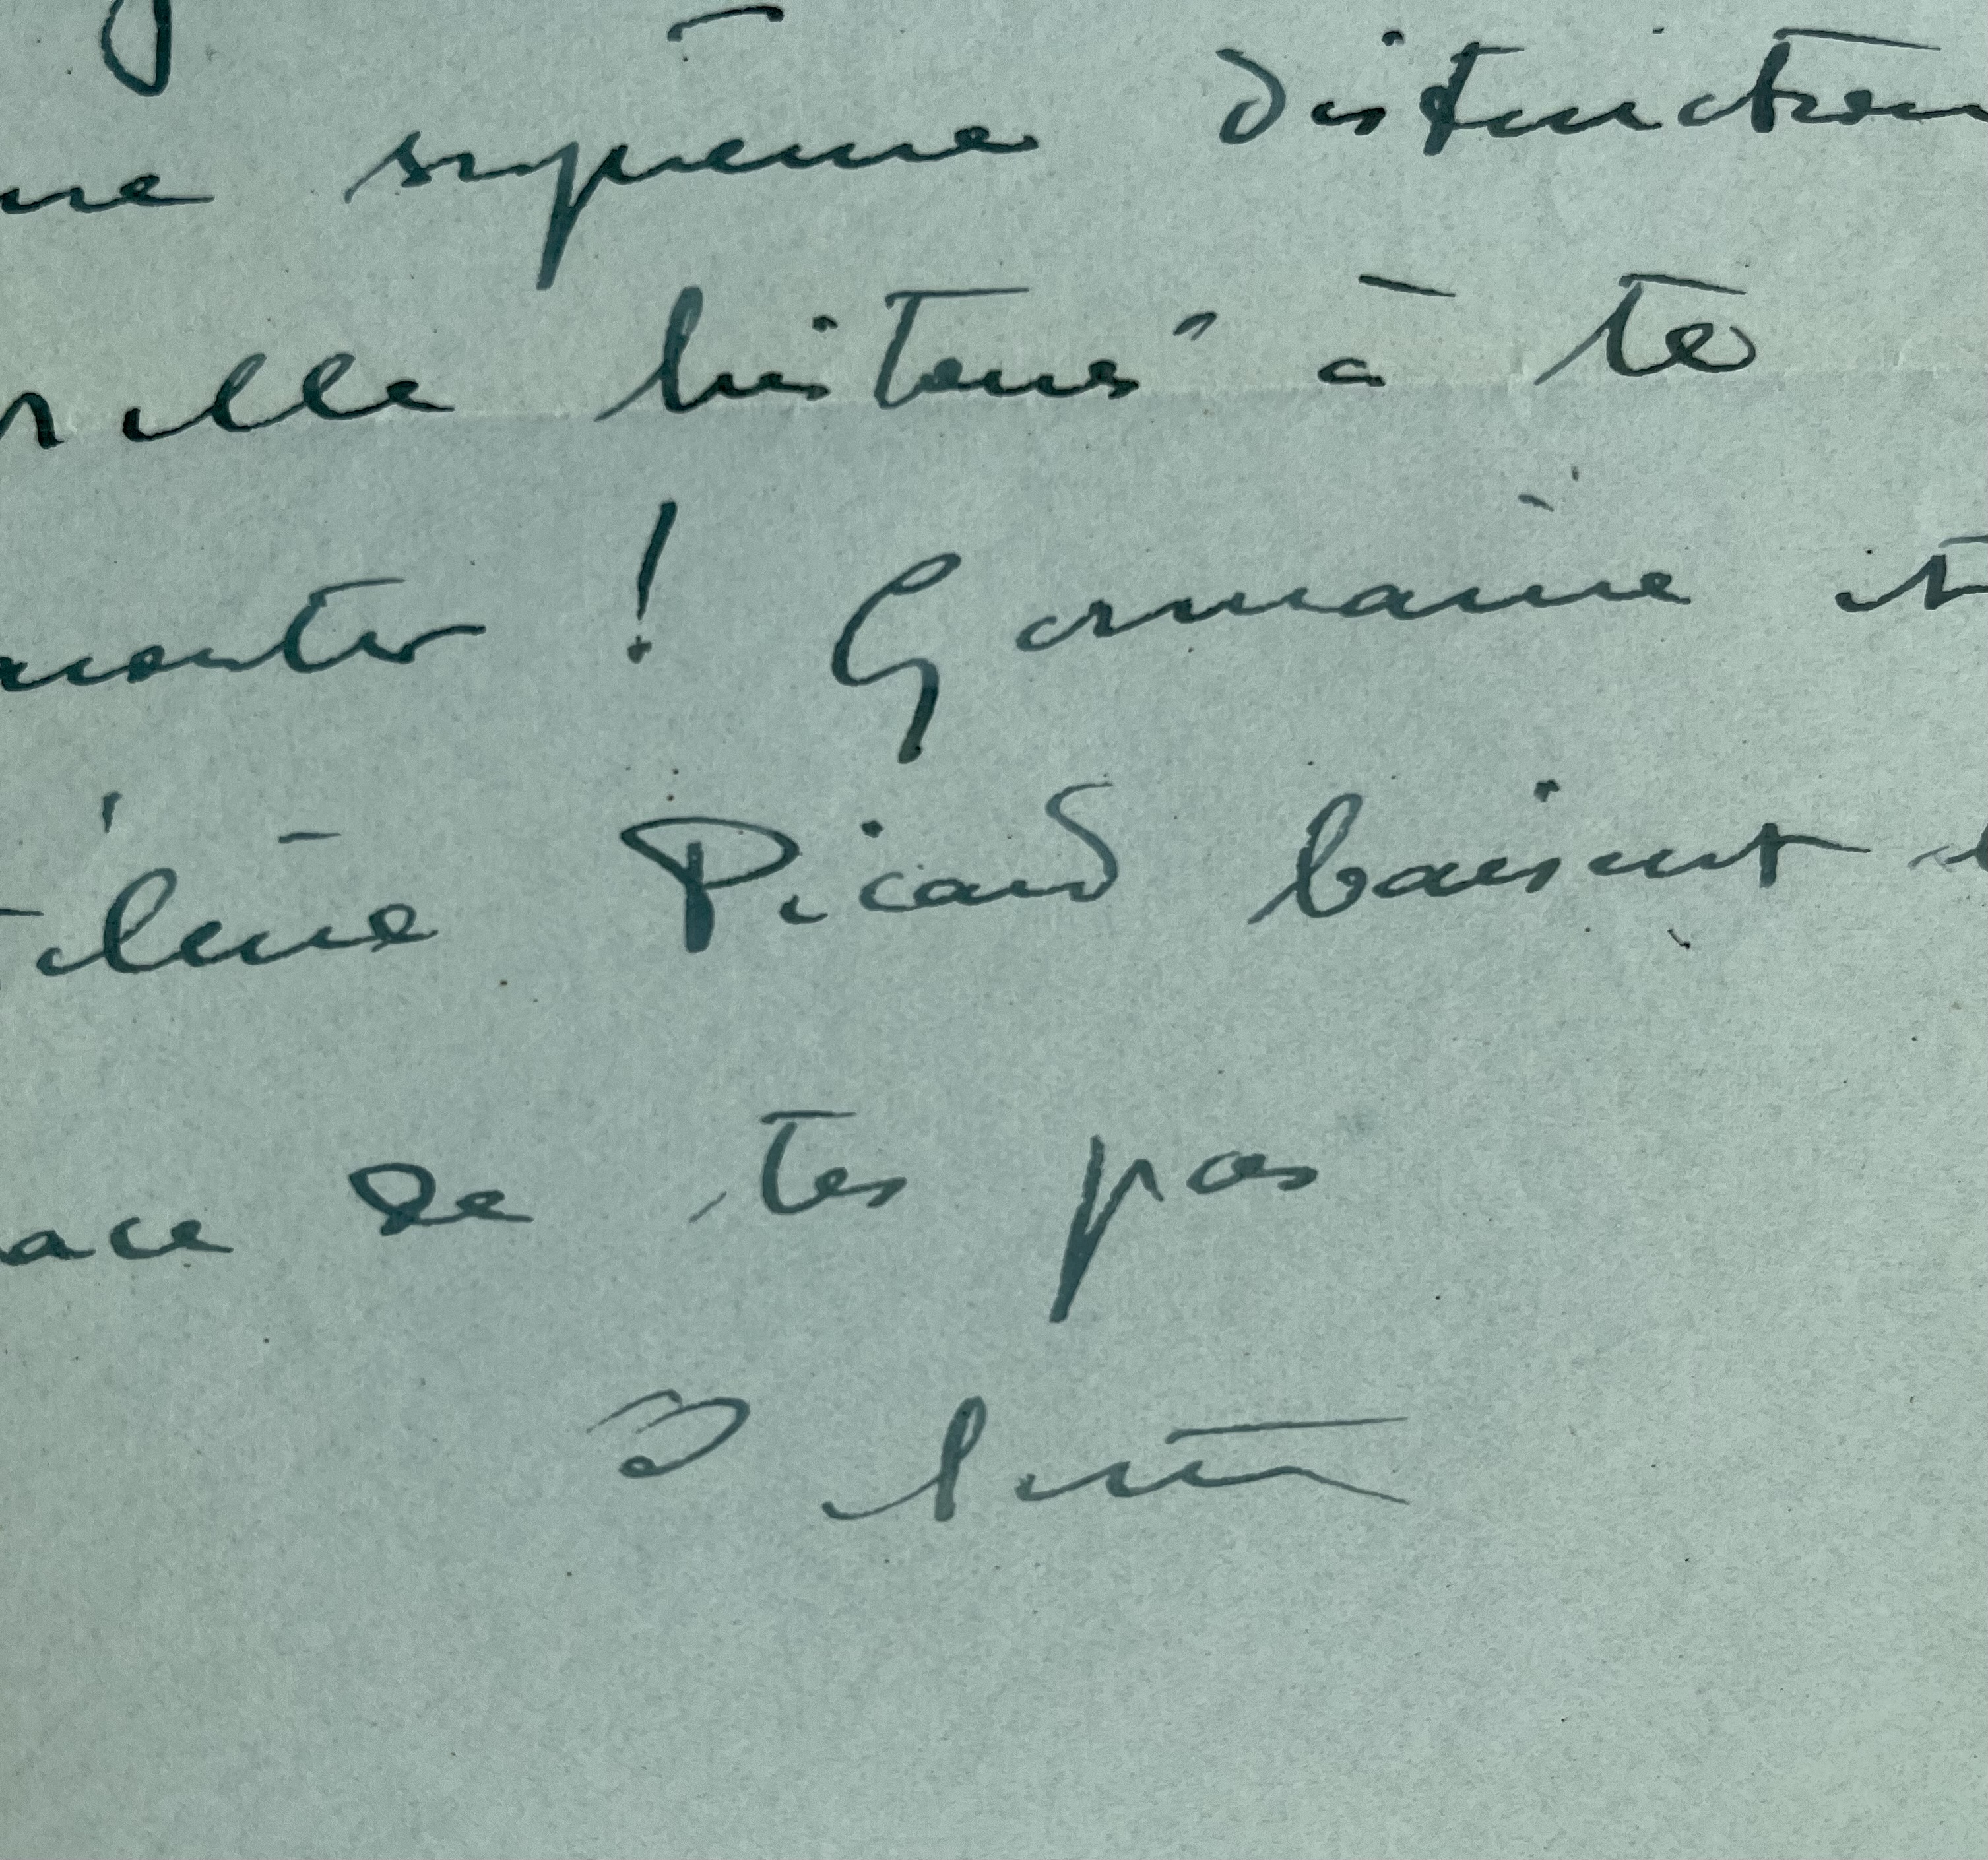 ne suprême distinction
elle histoires" à te
conter ! Germaine et
élène Picard baisent
ace de tes pas